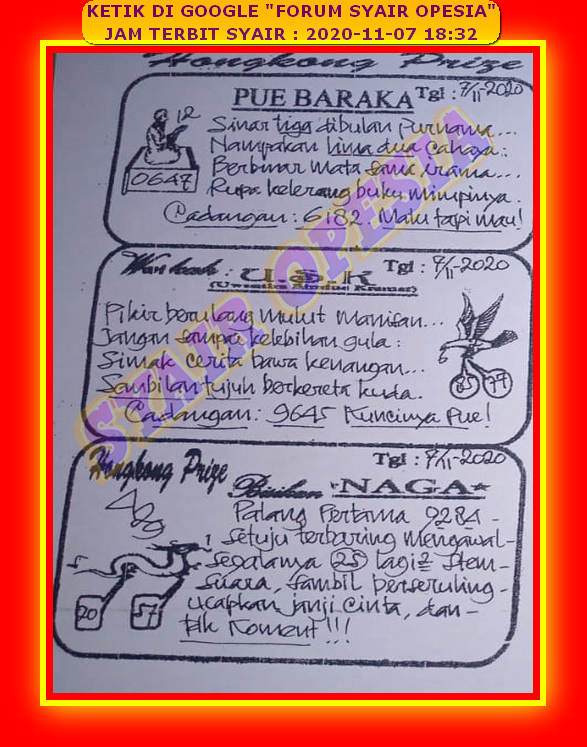 KETIK DI GOOGLE "FORUM SYAIR OPESIA"
JAM TERBIT SYAIR : 2020-11-07 18:32
Hongkong Prize
PUE BARAKA Tgl : 7/11-2020
12
0647
Sinar tiga dibulan Purnama...
Nampakan lima dua cahaya :
Berbinar mata sama irama...
Rupa kelereng buku mimpinya.
Cadangan : 6182. Malu tapi mau!
U.S.K Tgl : 7/11-2020
Pikir berulang mulut manisan...
Jangan sampai kelebihan gula :
Simak cerita bawa kenangan...
Sambilan tujuh berkereta kuda.
85 77
Cadangan : 9645 Kuncinya Pue!
SYAIR OPESIA
Hongkong Prize Tgl : 7/11-2020
Bisikan NAGA
Palang Pertama 9284 -
setuju terbaring mengawal -
segalanya 25 lagi2 stem -
suara, sambil berseruling -
ucapkan janji cinta, dan -
tak Koment !!!
20 57